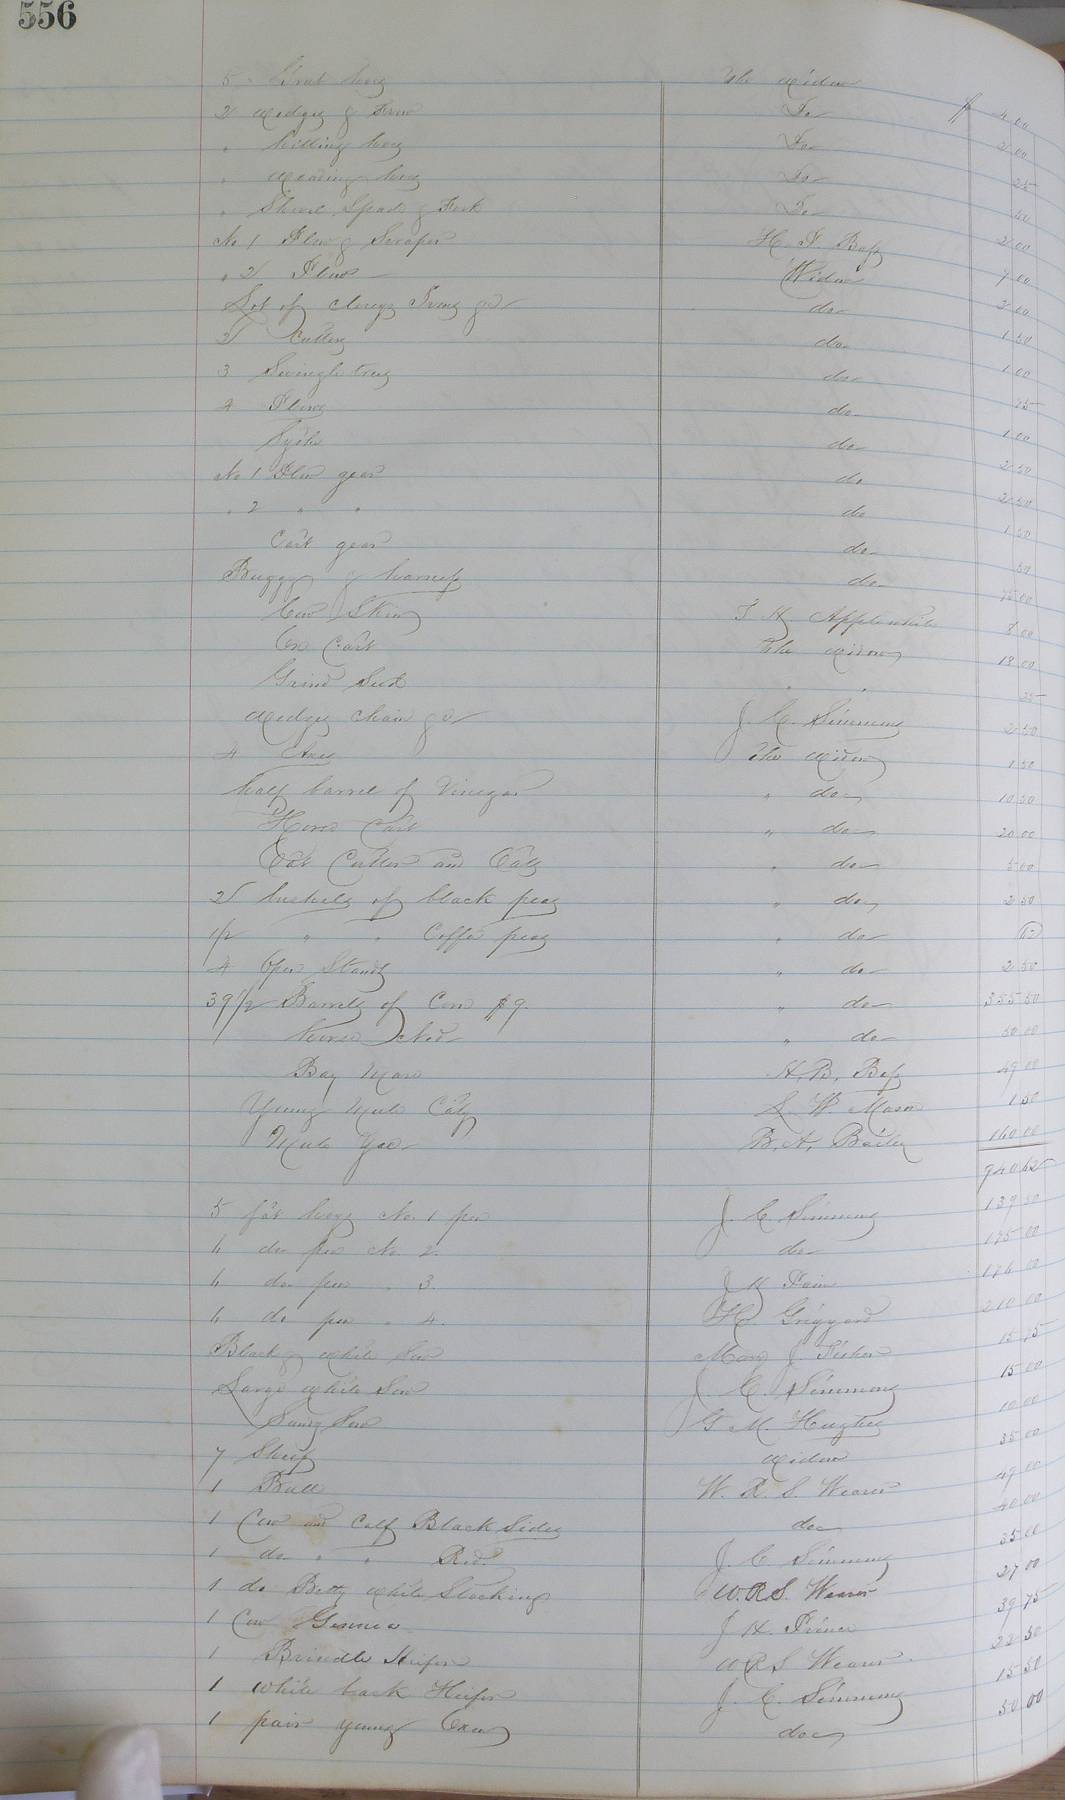 556
5 Grub hoes The Widow
2 Wedges & Do $ 4 00
" hilling hoes Do 2 00
" Weeding hoes Do 25
" Shovel Spade & Fork Do 40
No 1 Plow & Scraper H. F. Bass 2 00
" 2 Plow Widow 7 00
Lot of Irons &c do 2 00
2 Cutters do 1 50
3 Swingletrees do 1 00
4 Plows do
do 1 00
No 1 Plow gear do 2 50
" 2 " " do 2 50
Cart gear do 1 50
Buggy & harness do 50
Cow Skin T H Applewhite 75 00
Ox Cart The Widow 8 00
Grind " " 18 00
Wedges chain &c J. C. Simmons 25
4 Axes The Widow 2 50
half barrel of Vinegar " do 1 50
Horse Cart " do 10 50
Oat Cutter and Oats " do 20 00
5 00
2 bushels of black peas " do 2 50
1/2 " " Coffee peas " do 62
4 Stands " do 2 50
39 1/2 Barrels of Corn $9. " do 355 50
horse " do 50 00
Bay Mare H. B. Bass 49 00
Young Mule Colt L W Mason 1 50
Mule B. A. Bailey 160 00
940 62
5 fat hogs No. 1 pen J. C. Simmons 139 50
6 do pen No 2. do 175 00
6 do pen " 3. J H 176 00
6 do pen " 4. H Griggard 210 00
Black & white Sow Mary J. 15 75
Large white Sow J. C. Simmons 15 00
Sandy Sow G. M. Hughes 10 00
7 Sheep Widow 35 00
1 Bull W. R. S. Weaver 49 00
1 Cow and Calf Black Sides do 40 00
1 do " " Red J. C Simmons 35 00
1 do Betty white Stocking W. R. S. Weaver 27 00
1 Cow J. H. 39 75
1 Brindle Heifer W R S Weaver 22 50
1 white back Heifer J. C. Simmons 15 50
1 pair young Oxen do 50 00